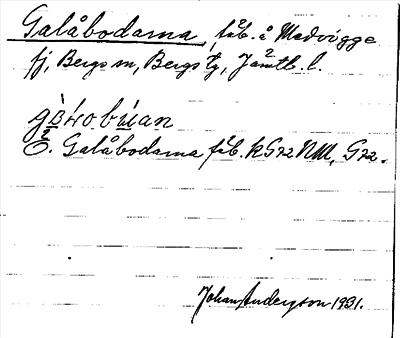 Galåbodarna, fäb. å Medvigge
fj, Bergs sn, Bergs tg, Jämtl. l.
Ö. Galåbodarna fäb. k G72 NM, G72.
Johan Anderzson 1931.